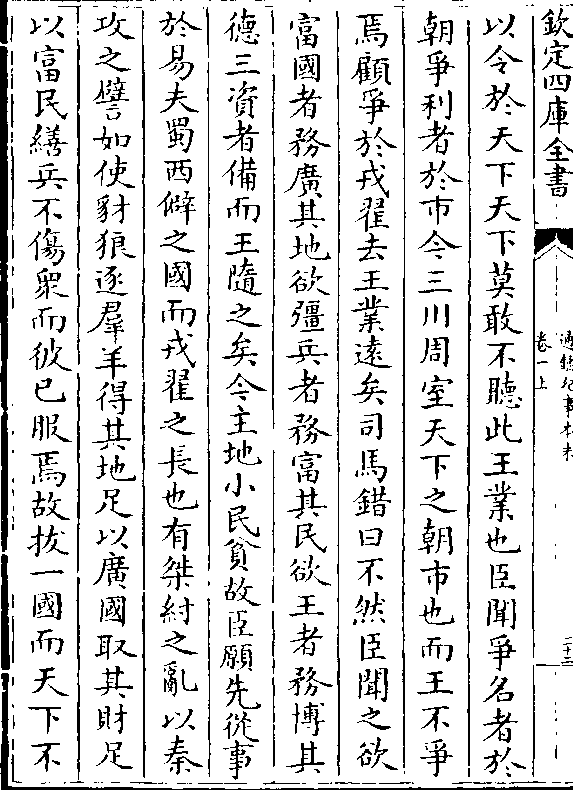 欽定四庫全書
通鑑紀事本末
卷一上
二十二
以令於天下天下莫敢不聽此王業也臣聞爭名者於
朝爭利者於市今三川周室天下之朝市也而王不爭
焉顧爭於戎翟去王業遠矣司馬錯曰不然臣聞之欲
富國者務廣其地欲彊兵者務富其民欲王者務博其
德三資者備而王隨之矣今主地小民貧故臣願先從事
於易夫蜀西僻之國而戎翟之長也有桀紂之亂以秦
攻之譬如使豺狼逐羣羊得其地足以廣國取其財足
以富民繕兵不傷衆而彼已服焉故拔一國而天下不